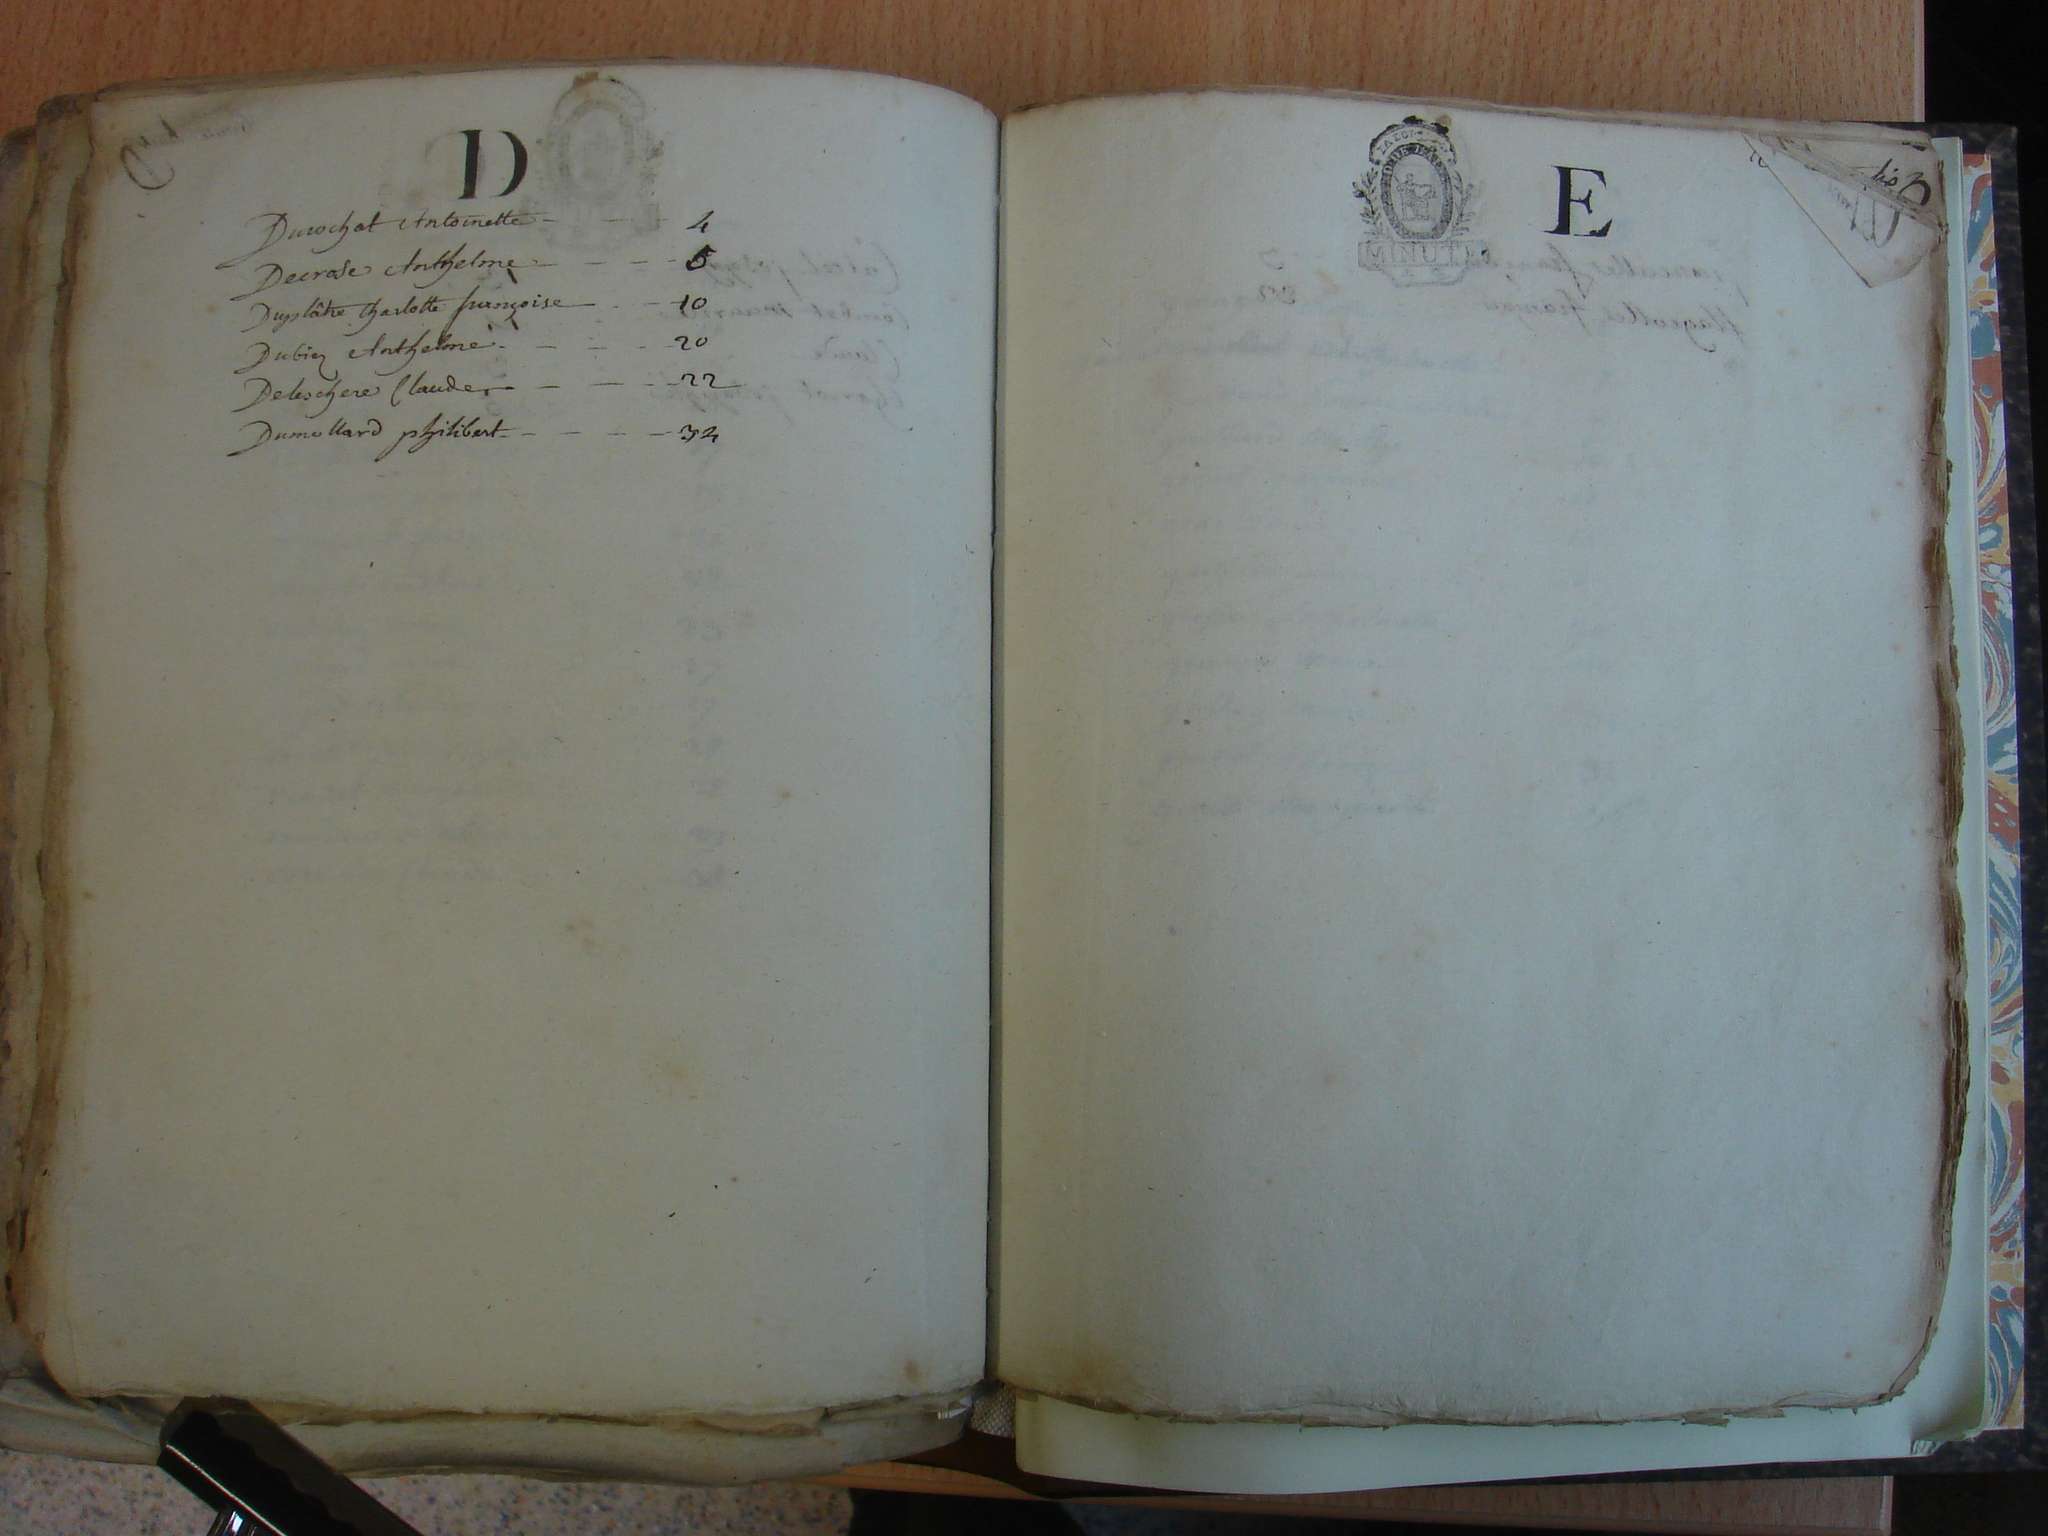 D
Durochat Antoinette - - - - 4
Decrose Anthelme - - - - 5
Duplâtre Charlotte françoise - - - 10
Dubiez Anthelme - - - - 20
Deleschere Claude - - - - 22
Dumollard philibert - - - - 34
E
MINUTE